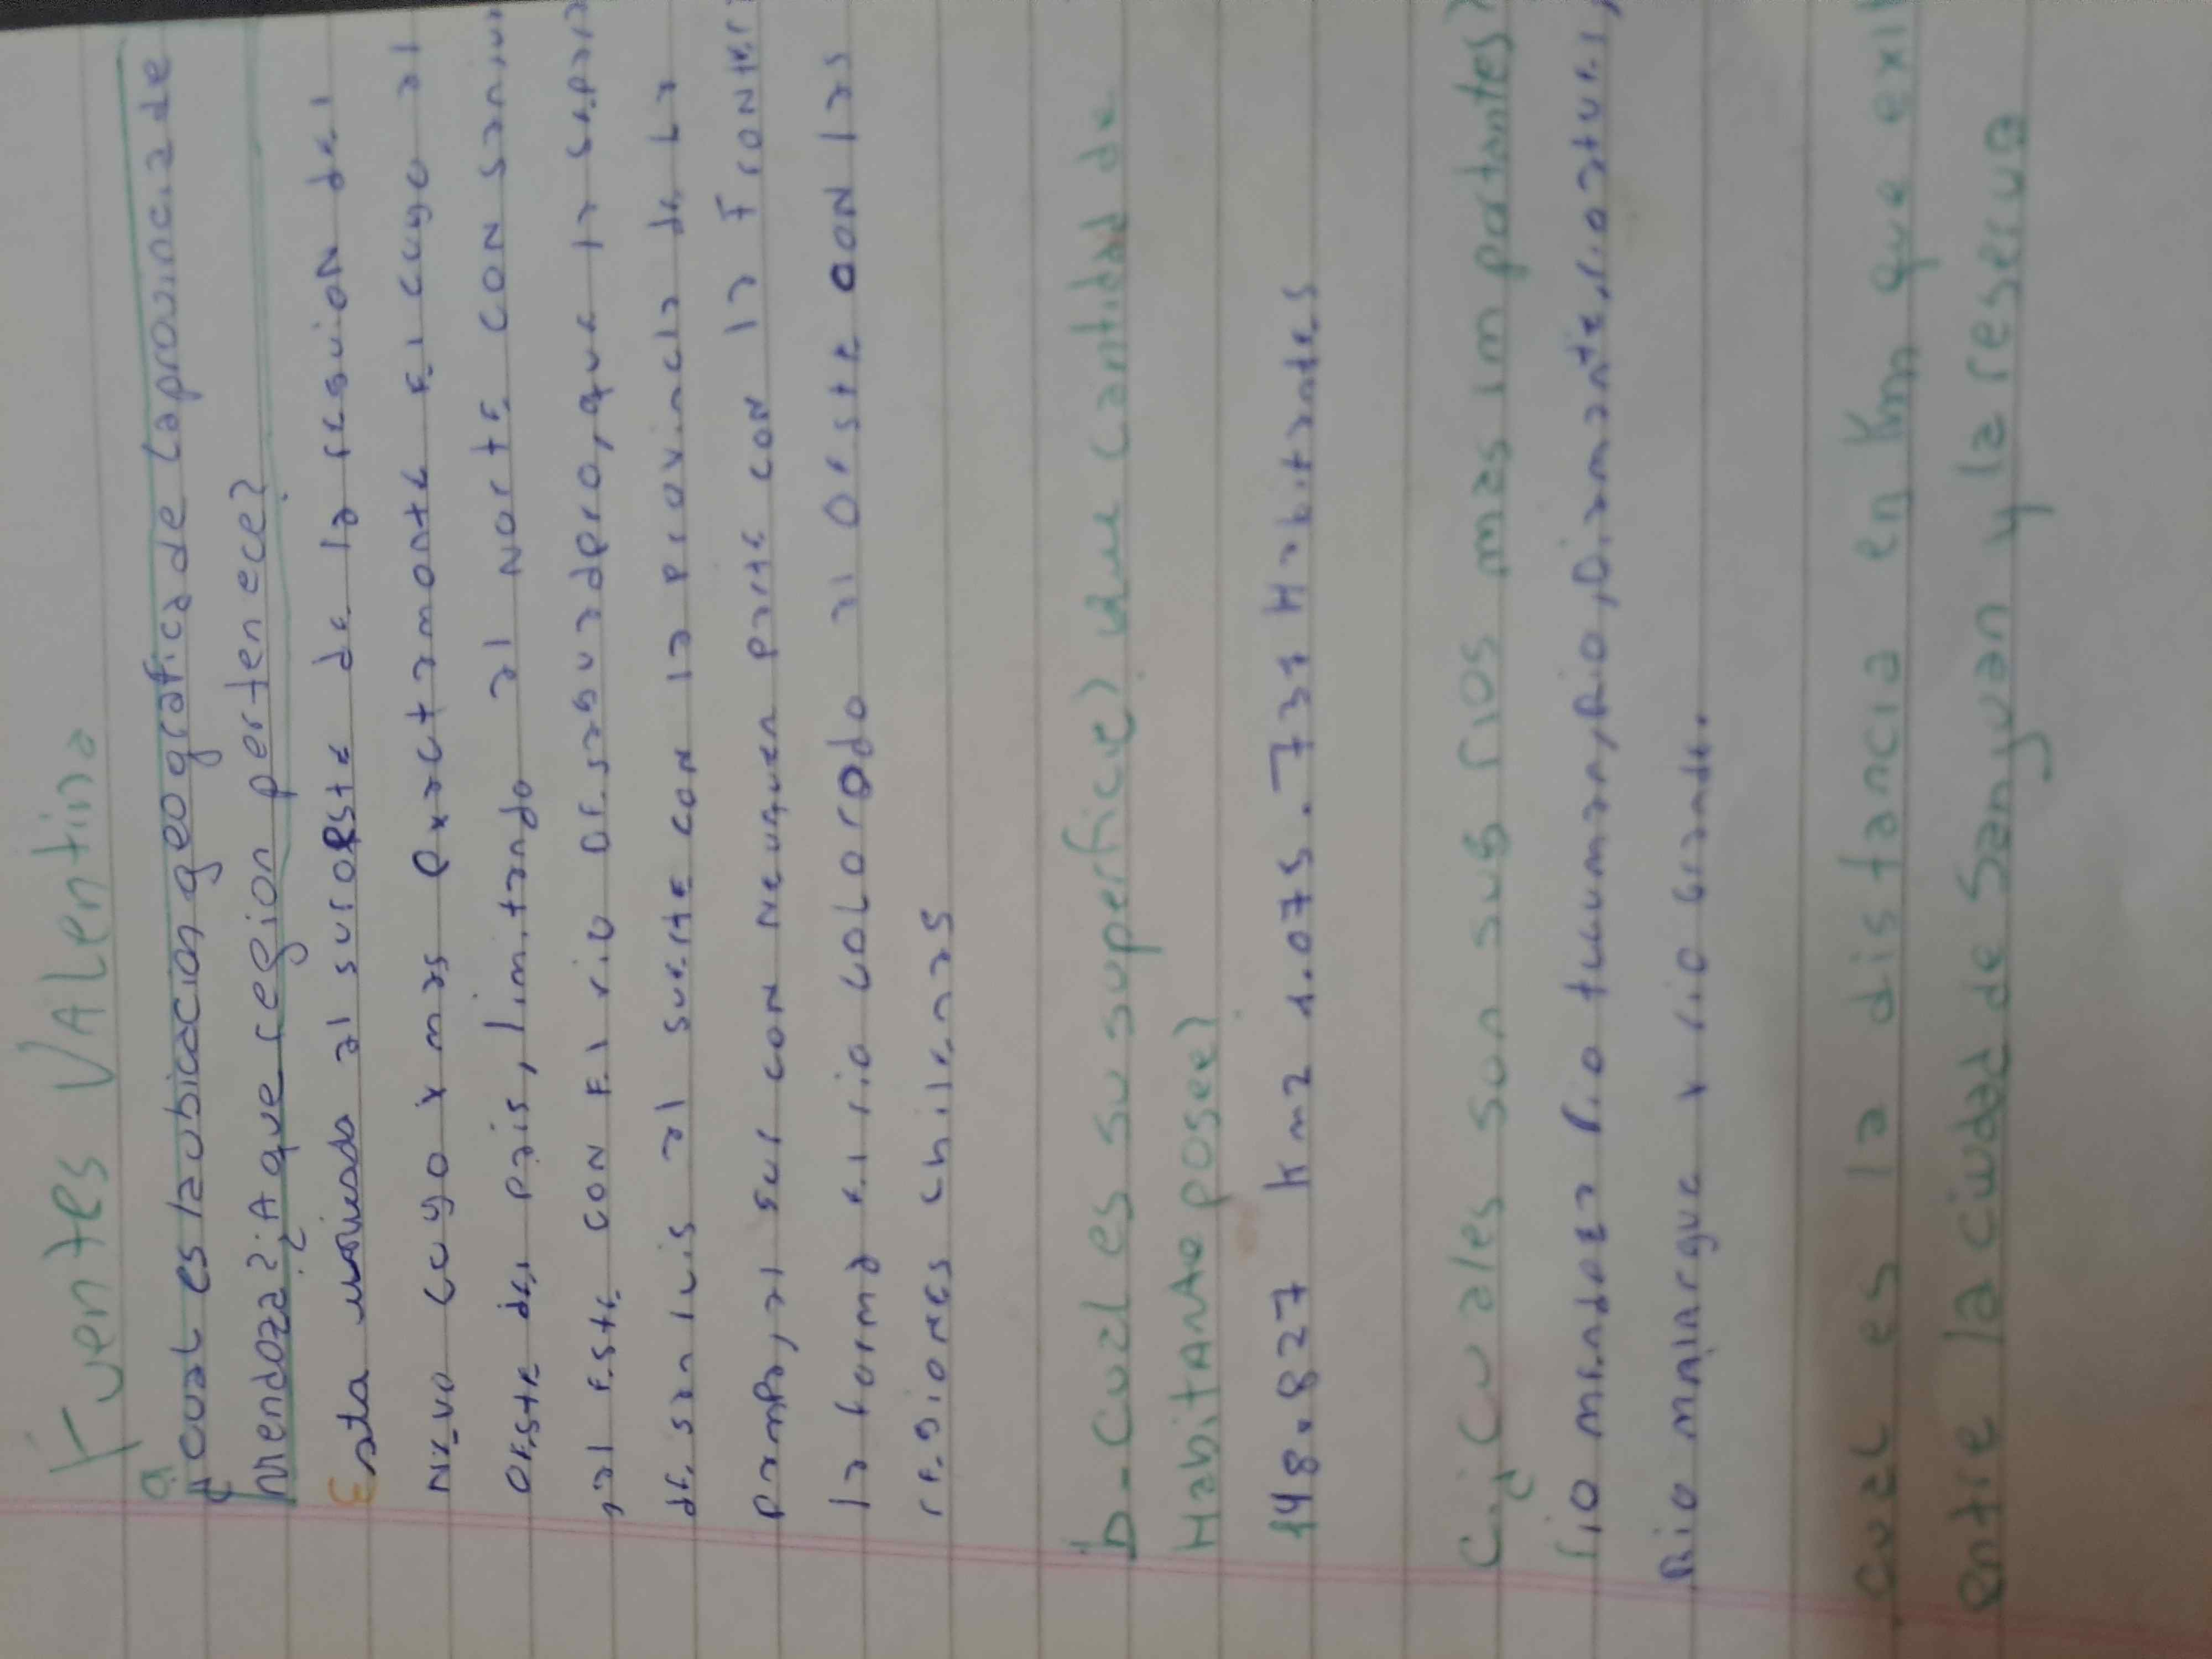 Fuentes VALentina
a ¿cuaL es la ubicacion geografica de La provincia de
Mendoza? ¿A que region pertenece?
Esta ubicada al suroeste de la reguion del
Nuevo cuyo y mas exactamente El cuyo al
oeste del pais, limitando al Norte CON San Juan
,al Este CON El rio Desaguadero, que la separa
de San luis al sureste con la provincia de La
pampa, al sur con Neuquen parte con la Fronter
la forma el rio coLorado al oeste con las
regiones chilenas
b-CuaL es su superficie? Que Cantidad de
HabitANte posee?
148.827 Km2 1.075.731 Habitantes
C.¿Cuales son sus rios mas importantes?
rio mendoza rio tucuman, Rio, Diamante, rio atuel,
Rio malargue y rio Grande.
CuaL es la distancia en Km que exi
entre la ciudad de Sanjuan y la reserua